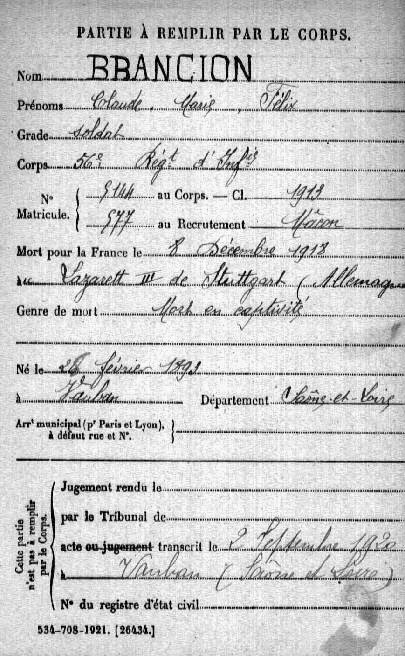 PARTIE À REMPLIR PAR LE CORPS.
Nom BRANCION
Prénoms Claude, Marie, Félix
Grade soldat
Corps 56e Régt d'Infie
N° Matricule. 9144 au Corps. — Cl. 1913
977 au Recrutement Mâcon
Mort pour la France le 8 Décembre 1918
à Lazarett III de Stuttgart (Allemagne
Genre de mort Mort en captivité
Né le 28 février 1893
à Vauban Département Saône-et-Loire
Arrt municipal (pr Paris et Lyon),
à défaut rue et N°.
Cette partie
n'est pas à remplir
par le Corps.
Jugement rendu le
par le Tribunal de
acte ou jugement transcrit le 2 Septembre 1920
à Vauban (Saône et Loire)
N° du registre d'état civil
534-708-1921. [26434.]